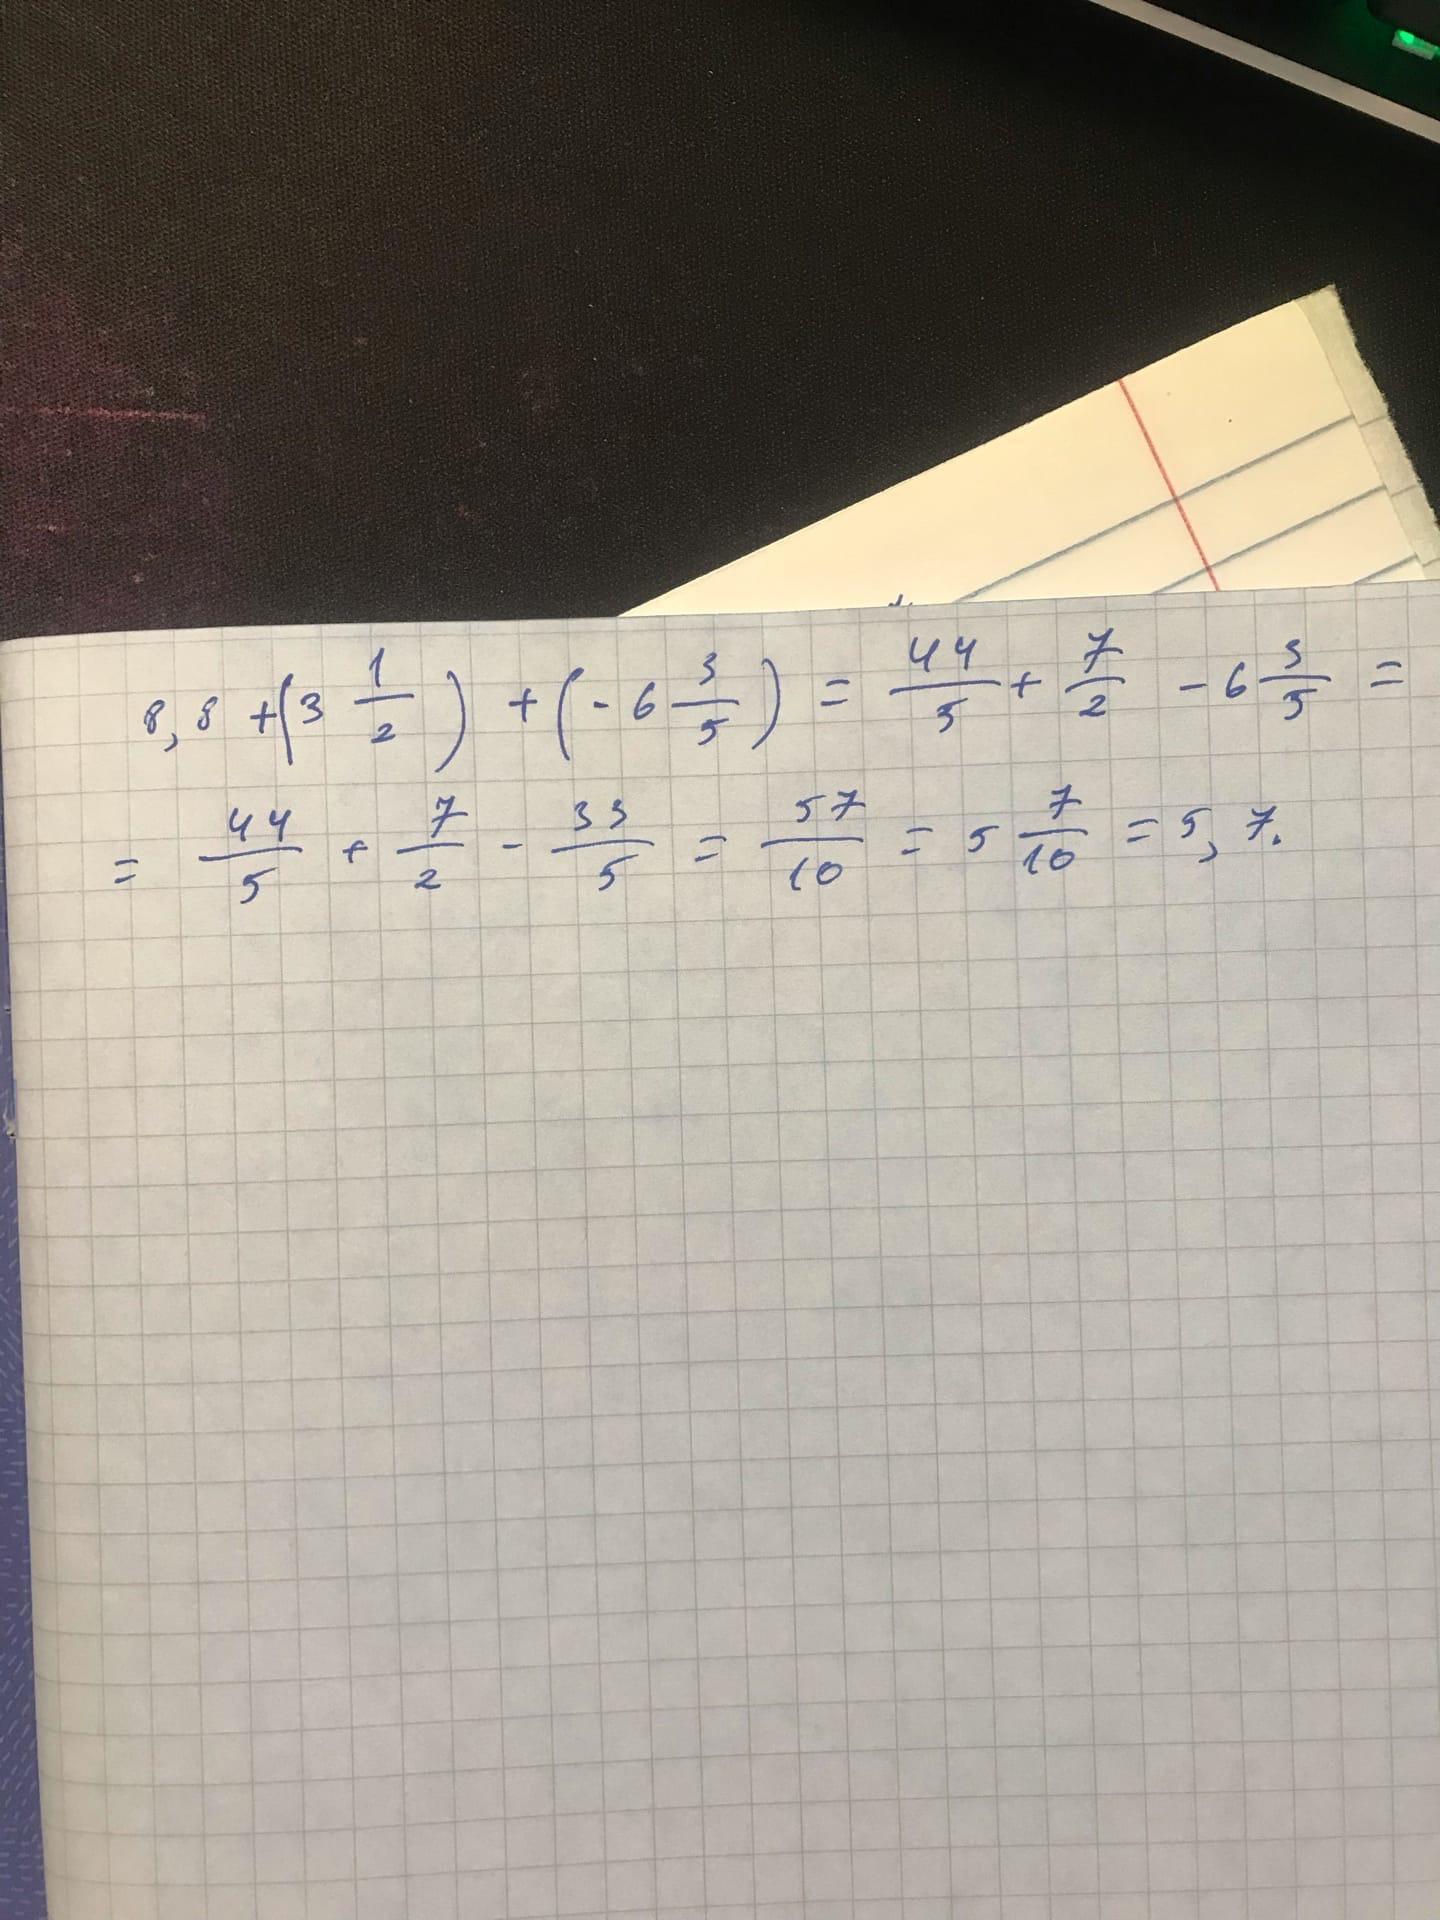 8,8 + (3 1/2) + (- 6 3/5) = 44/5 + 7/2 - 6 3/5 =
= 44/5 + 7/2 - 33/5 = 57/10 = 5 7/10 = 5,7.